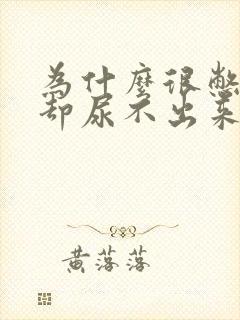 為什麼很憋
卻尿不出來
黃落落